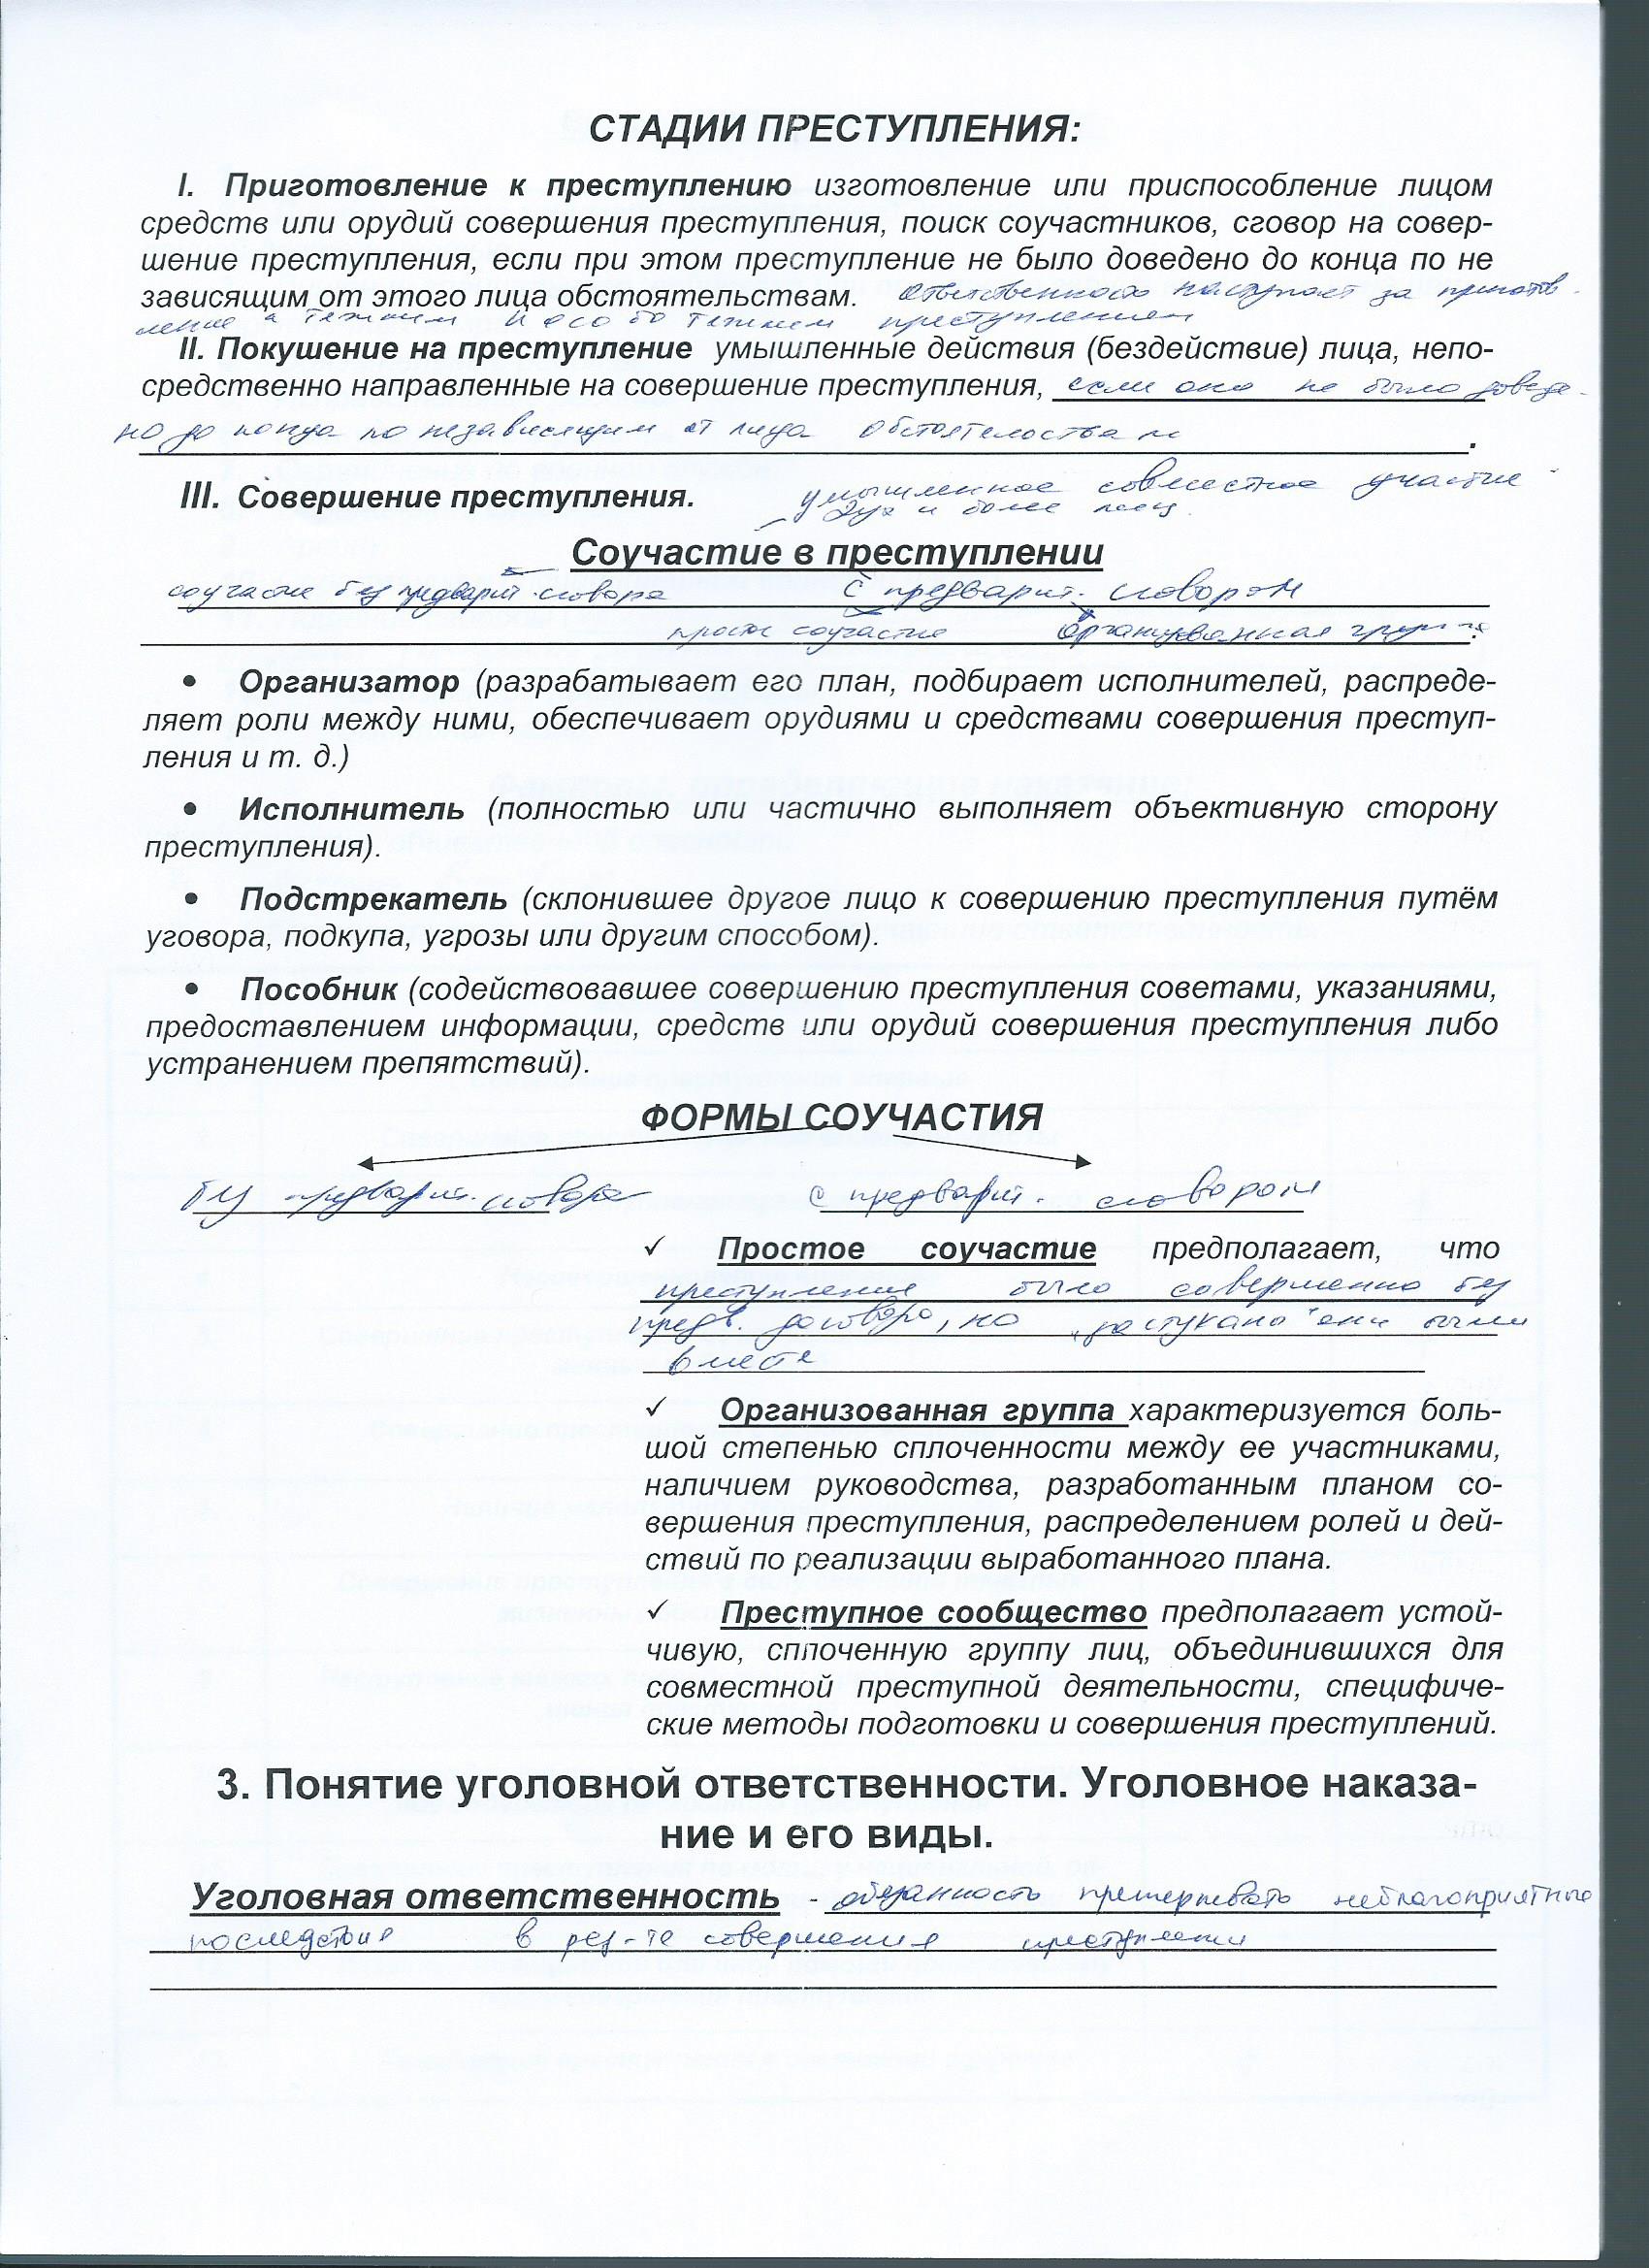 СТАДИИ ПРЕСТУПЛЕНИЯ:
I. Приготовление к преступлению изготовление или приспособление лицом
средств или орудий совершения преступления, поиск соучастников, сговор на совер-
шение преступления, если при этом преступление не было доведено до конца по не
зависящим от этого лица обстоятельствам. Ответственность наступает за приготов-
ление к тяжким и особо тяжким преступлениям
II. Покушение на преступление умышленные действия (бездействие) лица, непо-
средственно направленные на совершение преступления, если оно не было доведе-
но до конца по независящим от лица обстоятельствам.
III. Совершение преступления. умышленное совместное участие
двух и более лиц.
Соучастие в преступлении
соучастие без предварит. сговора с предварит. сговором
простое соучастие Организованная группа.
• Организатор (разрабатывает его план, подбирает исполнителей, распреде-
ляет роли между ними, обеспечивает орудиями и средствами совершения преступ-
ления и т. д.)
• Исполнитель (полностью или частично выполняет объективную сторону
преступления).
• Подстрекатель (склонившее другое лицо к совершению преступления путём
уговора, подкупа, угрозы или другим способом).
• Пособник (содействовавшее совершению преступления советами, указаниями,
предоставлением информации, средств или орудий совершения преступления либо
устранением препятствий).
ФОРМЫ СОУЧАСТИЯ
без предварит. сговора с предварит. сговором
✓ Простое соучастие предполагает, что
преступление было совершенно без
предв. договора, но они были
вместе
✓ Организованная группа характеризуется боль-
шой степенью сплоченности между ее участниками,
наличием руководства, разработанным планом со-
вершения преступления, распределением ролей и дей-
ствий по реализации выработанного плана.
✓ Преступное сообщество предполагает устой-
чивую, сплоченную группу лиц, объединившихся для
совместной преступной деятельности, специфиче-
ские методы подготовки и совершения преступлений.
3. Понятие уголовной ответственности. Уголовное наказа-
ние и его виды.
Уголовная ответственность - обязанность претерпевать неблагоприятные
последствия в рез-те совершения преступления